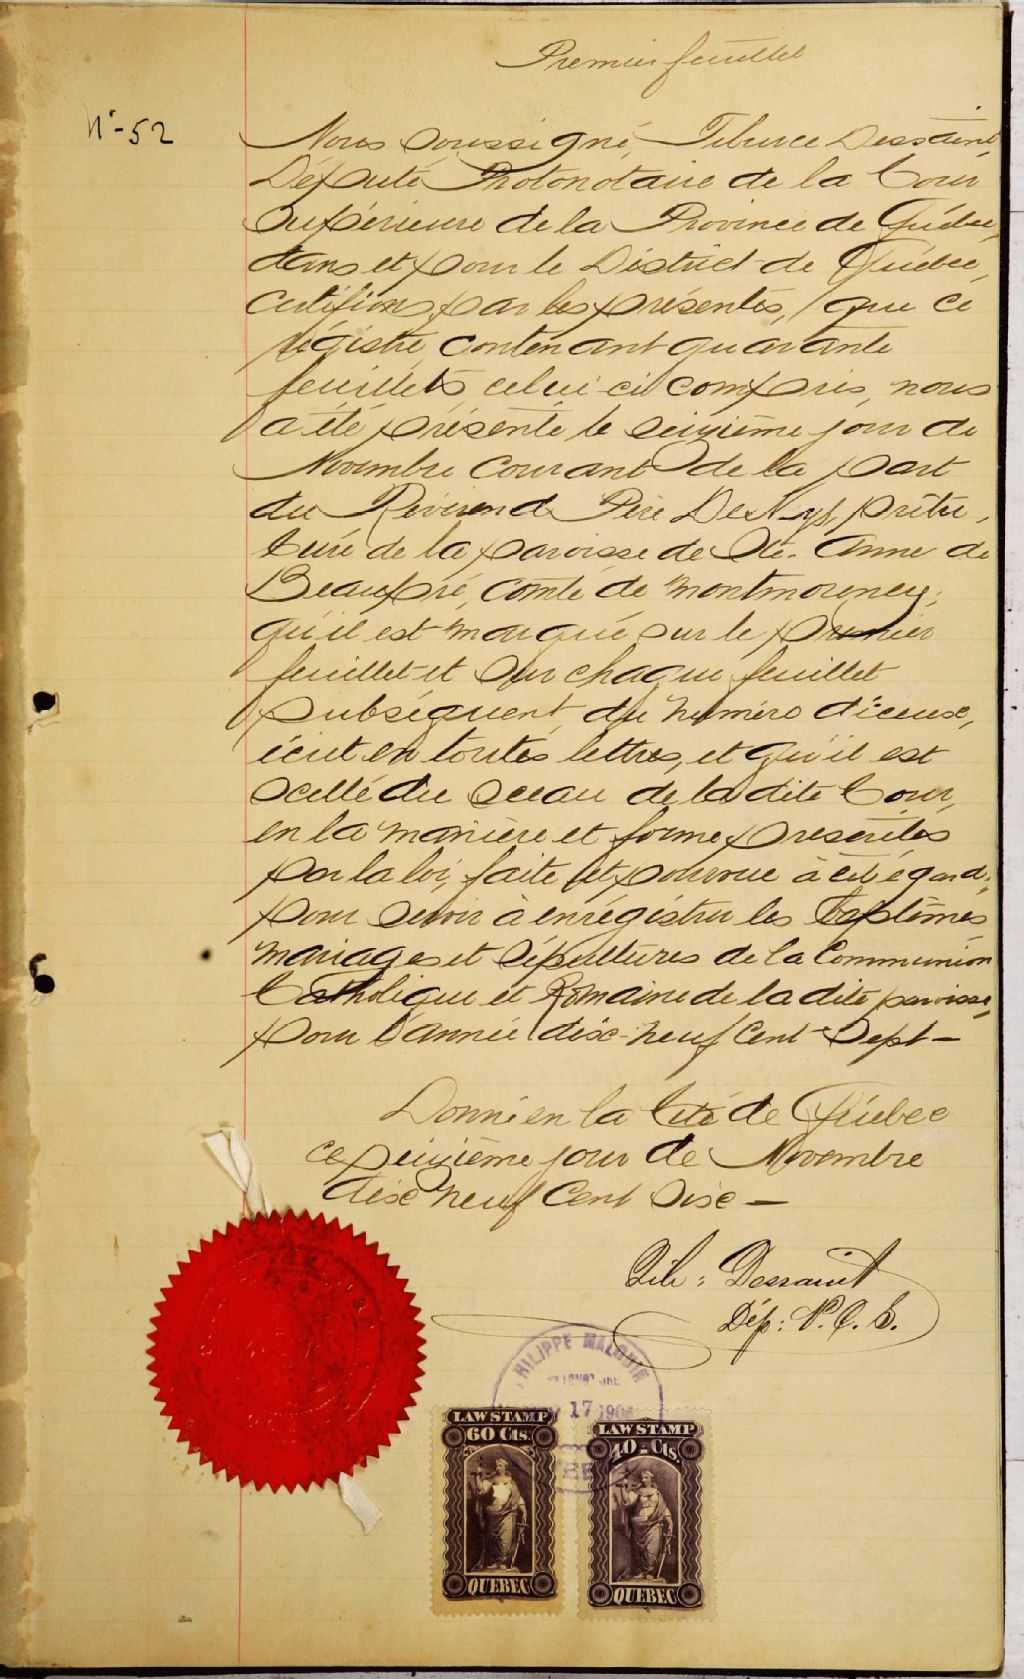 Premier feuillet
N°-52
Nous soussigné, Tiburce Dessaint,
Député Protonotaire de la Cour
Supérieure de la Province de Québec,
dans et pour le District de Québec,
certifions par les présentes, que ce
régistre contenant quarante
feuillets, celui-ci compris, nous
a été présenté le seizième jour de
Novembre courant de la part
du Révérend Père DesNys, prêtre,
Curé de la paroisse de Ste. Anne de
Beaupré, comté de Montmorency;
qu'il est marqué sur le premier
feuillet et sur chaque feuillet
subséquent, du numéro d'iceux,
écrit en toutes lettres, et qu'il est
scellé du sceau de la dite Cour,
en la manière et forme prescrites
par la loi, faite et pourvue à cet égard;
pour servir à enrégistrer les Baptêmes,
mariages et sépultures de la Communion
Catholique et Romaine de la dite paroisse,
pour l'année dix-neuf Cent-Sept-
Donné en la Cité de Québec
ce seizième jour de Novembre
dix neuf Cent Six-
Tib: Dessaint
Dép: P.C.S.
PHILIPPE MALOUIN
17 1906
LAW STAMP
60 Cts.
QUEBEC
LAW STAMP
40-Cts.
QUEBEC